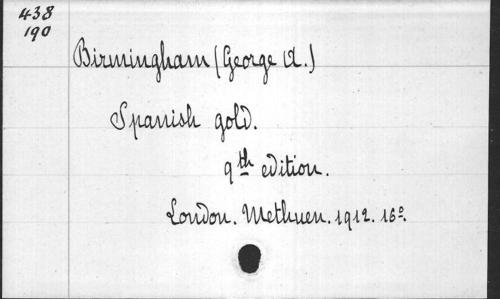 438
190
Birmingham (George A.)
Spanish gold.
9th edition.
London. Methuen. 1912. 16º.